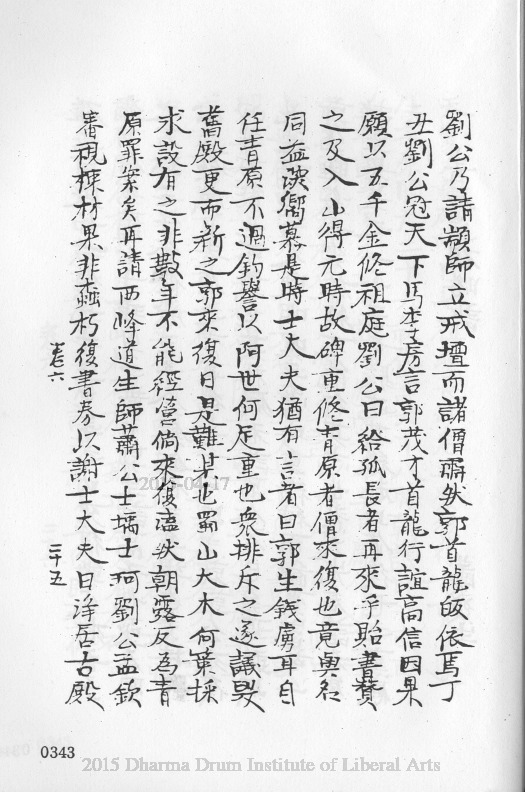 劉公乃請顓師立戒壇而諸僧肅然郭首龍皈依焉丁
丑劉公冠天下馬李房言郭茂才首龍行誼高信因果
願以五千金修祖庭劉公曰給孤長者再來乎貽書贊
之及入山得元時故碑重修青原者僧來復也竟與名
同益淡鄉慕是時士大夫猶有言者曰郭生錢虜耳自
任青原不過釣譽以阿世何足重也衆排斥之遂議毀
舊殿更而新之郭來復曰是難言也蜀山大木何葉採
求設有之非數年不能經營倘來復溘然朝露反為青
原罪案矣再請西峰道生師蕭公士瑀士珂劉公孟欽
審視棟材果非蠹朽復書券以謝士大夫曰淨居古殿
卷六
三十五
0343
2015-04-17
2015 Dharma Drum Institute of Liberal Arts